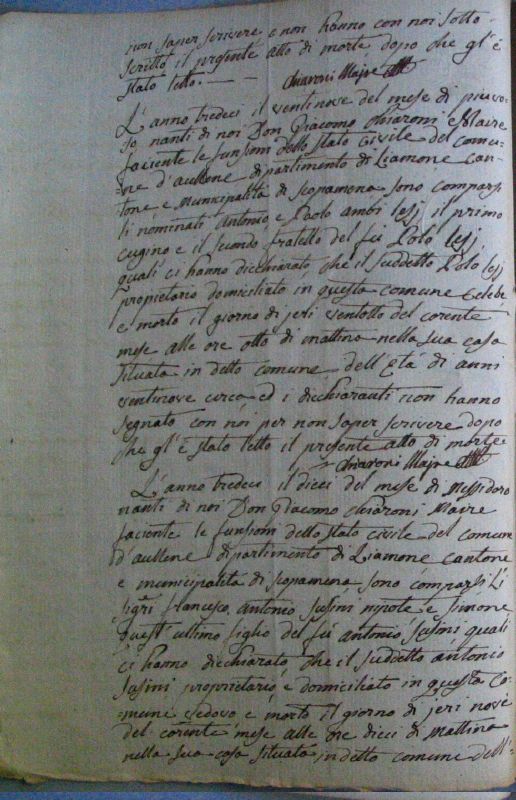 non saper scrivere e non hanno con noi sotto-
scritto il presente atto di morte dopo che gl'è
stato letto. —
Chiaroni Maire
L'anno tredeci il ventinove del mese di
nanti di noi Don Giacomo Chiaroni Maire
faciente le funsioni dello stato civile del comu-
ne d'aullene dipartimento di Liamone can-
tone e municipalità di scopamena sono comparsi
li nominati Antonio e Polo ambi lesj il primo
cugino e il secondo fratello del fù Polo lesj
quali ci hanno dicchiarato che il suddetto Polo lesj
proprietario domiciliato in questa comune Celebe
e morto il giorno di jeri ventotto del corente
mese alle ore otto di mattina nella sua casa
situata in detto comune dell'Età di anni
ventinove circa ed i dicchiaranti non hanno
segnato con noi per non saper scrivere dopo
che gl'è stato letto il presente atto di morte
Chiaroni Maire
L'anno tredeci il dieci del mese di Messidoro
nanti di noi Don Giacomo Chiaroni Maire
faciente le funsioni dello stato civile del comune
d'aullene dipartimento di Liamone cantone
e municipalità di scopamena sono comparsi Li
sigri francesco, antonio susini nipote e simone
quest'ultimo figlio del fù antonio susini quali
ci hanno dicchiarato che il suddetto antonio
susini proprietario e domiciliato in questa Co-
mune vedovo e morto il giorno di jeri nove
del corente mese alle ore dieci di mattina
nella sua casa situata in detto comune dell'